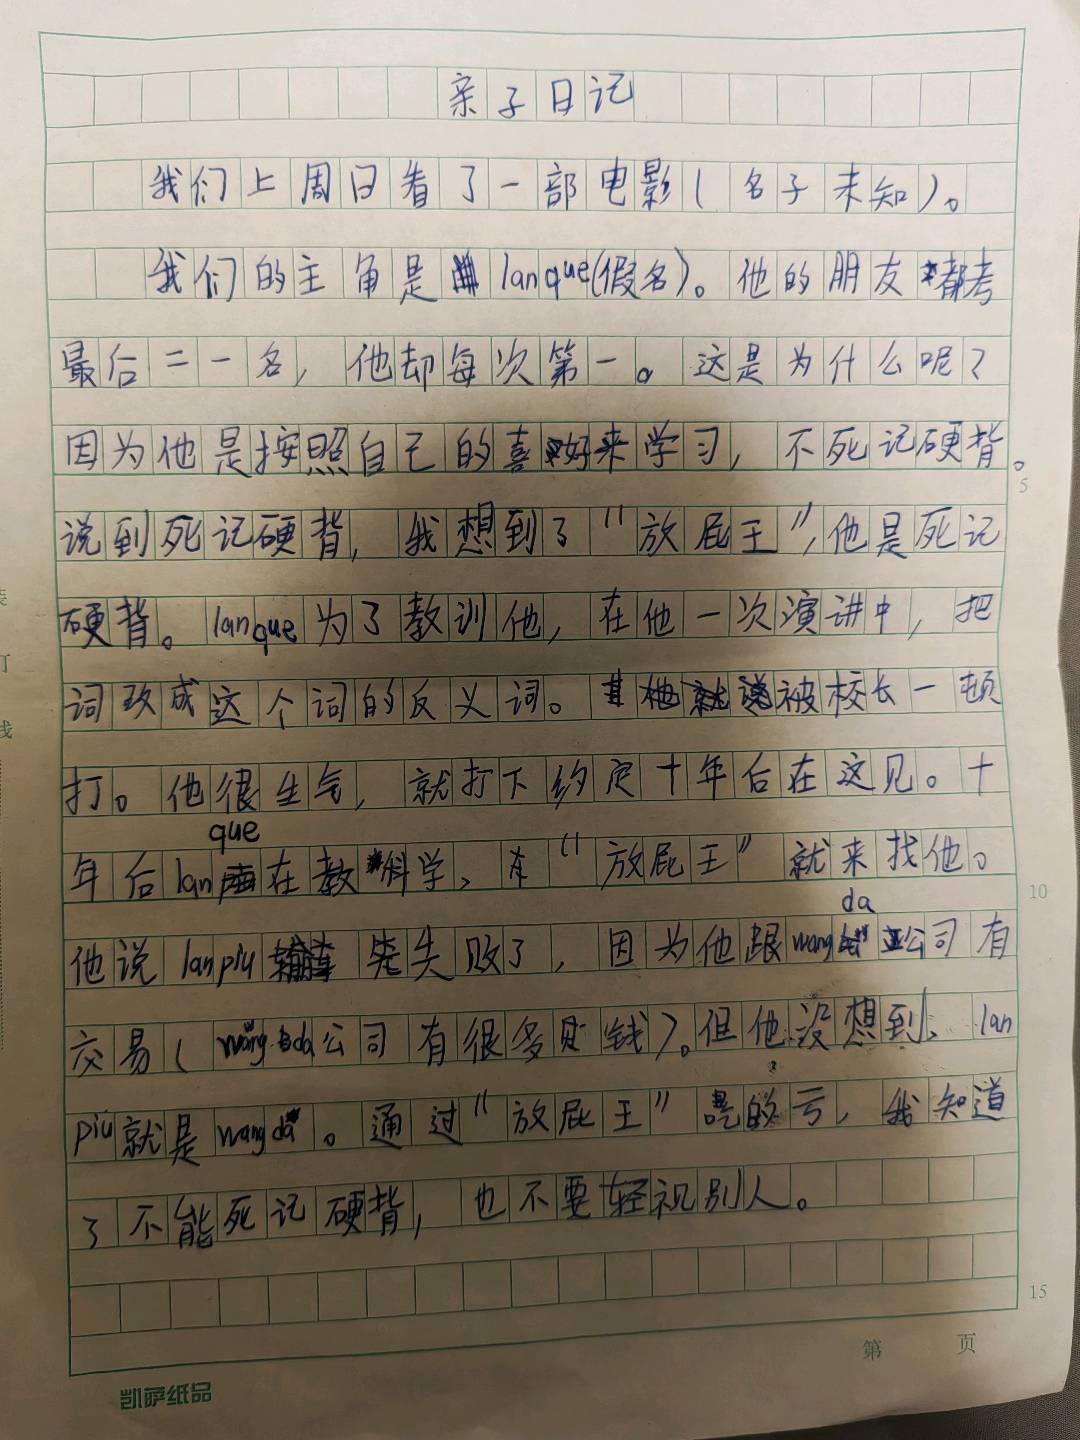 亲子日记
我们上周日看了一部电影(名子未知)。
我们的主角是lanque(假名)。他的朋友都考
最后二一名,他却每次第一。这是为什么呢?
因为他是按照自己的喜好来学习,不死记硬背。
说到死记硬背,我想到了“放屁王”,他是死记
硬背。lanque为了教训他,在他一次演讲中,把
词改成这个词的反义词。他就被校长一顿
打。他很生气,就打下约定十年后在这见。十
que
年后lan在教科学、“放屁王”就来找他。
da
他说lanpiu失败了,因为他跟wang公司有
交易(wangda公司有很多钱)。但他没想到、lan
piu就是wangda。通过“放屁王”吃的亏,我知道
了不能死记硬背,也不要轻视别人。
5
10
15
装
订
线
第 页
凯萨纸品